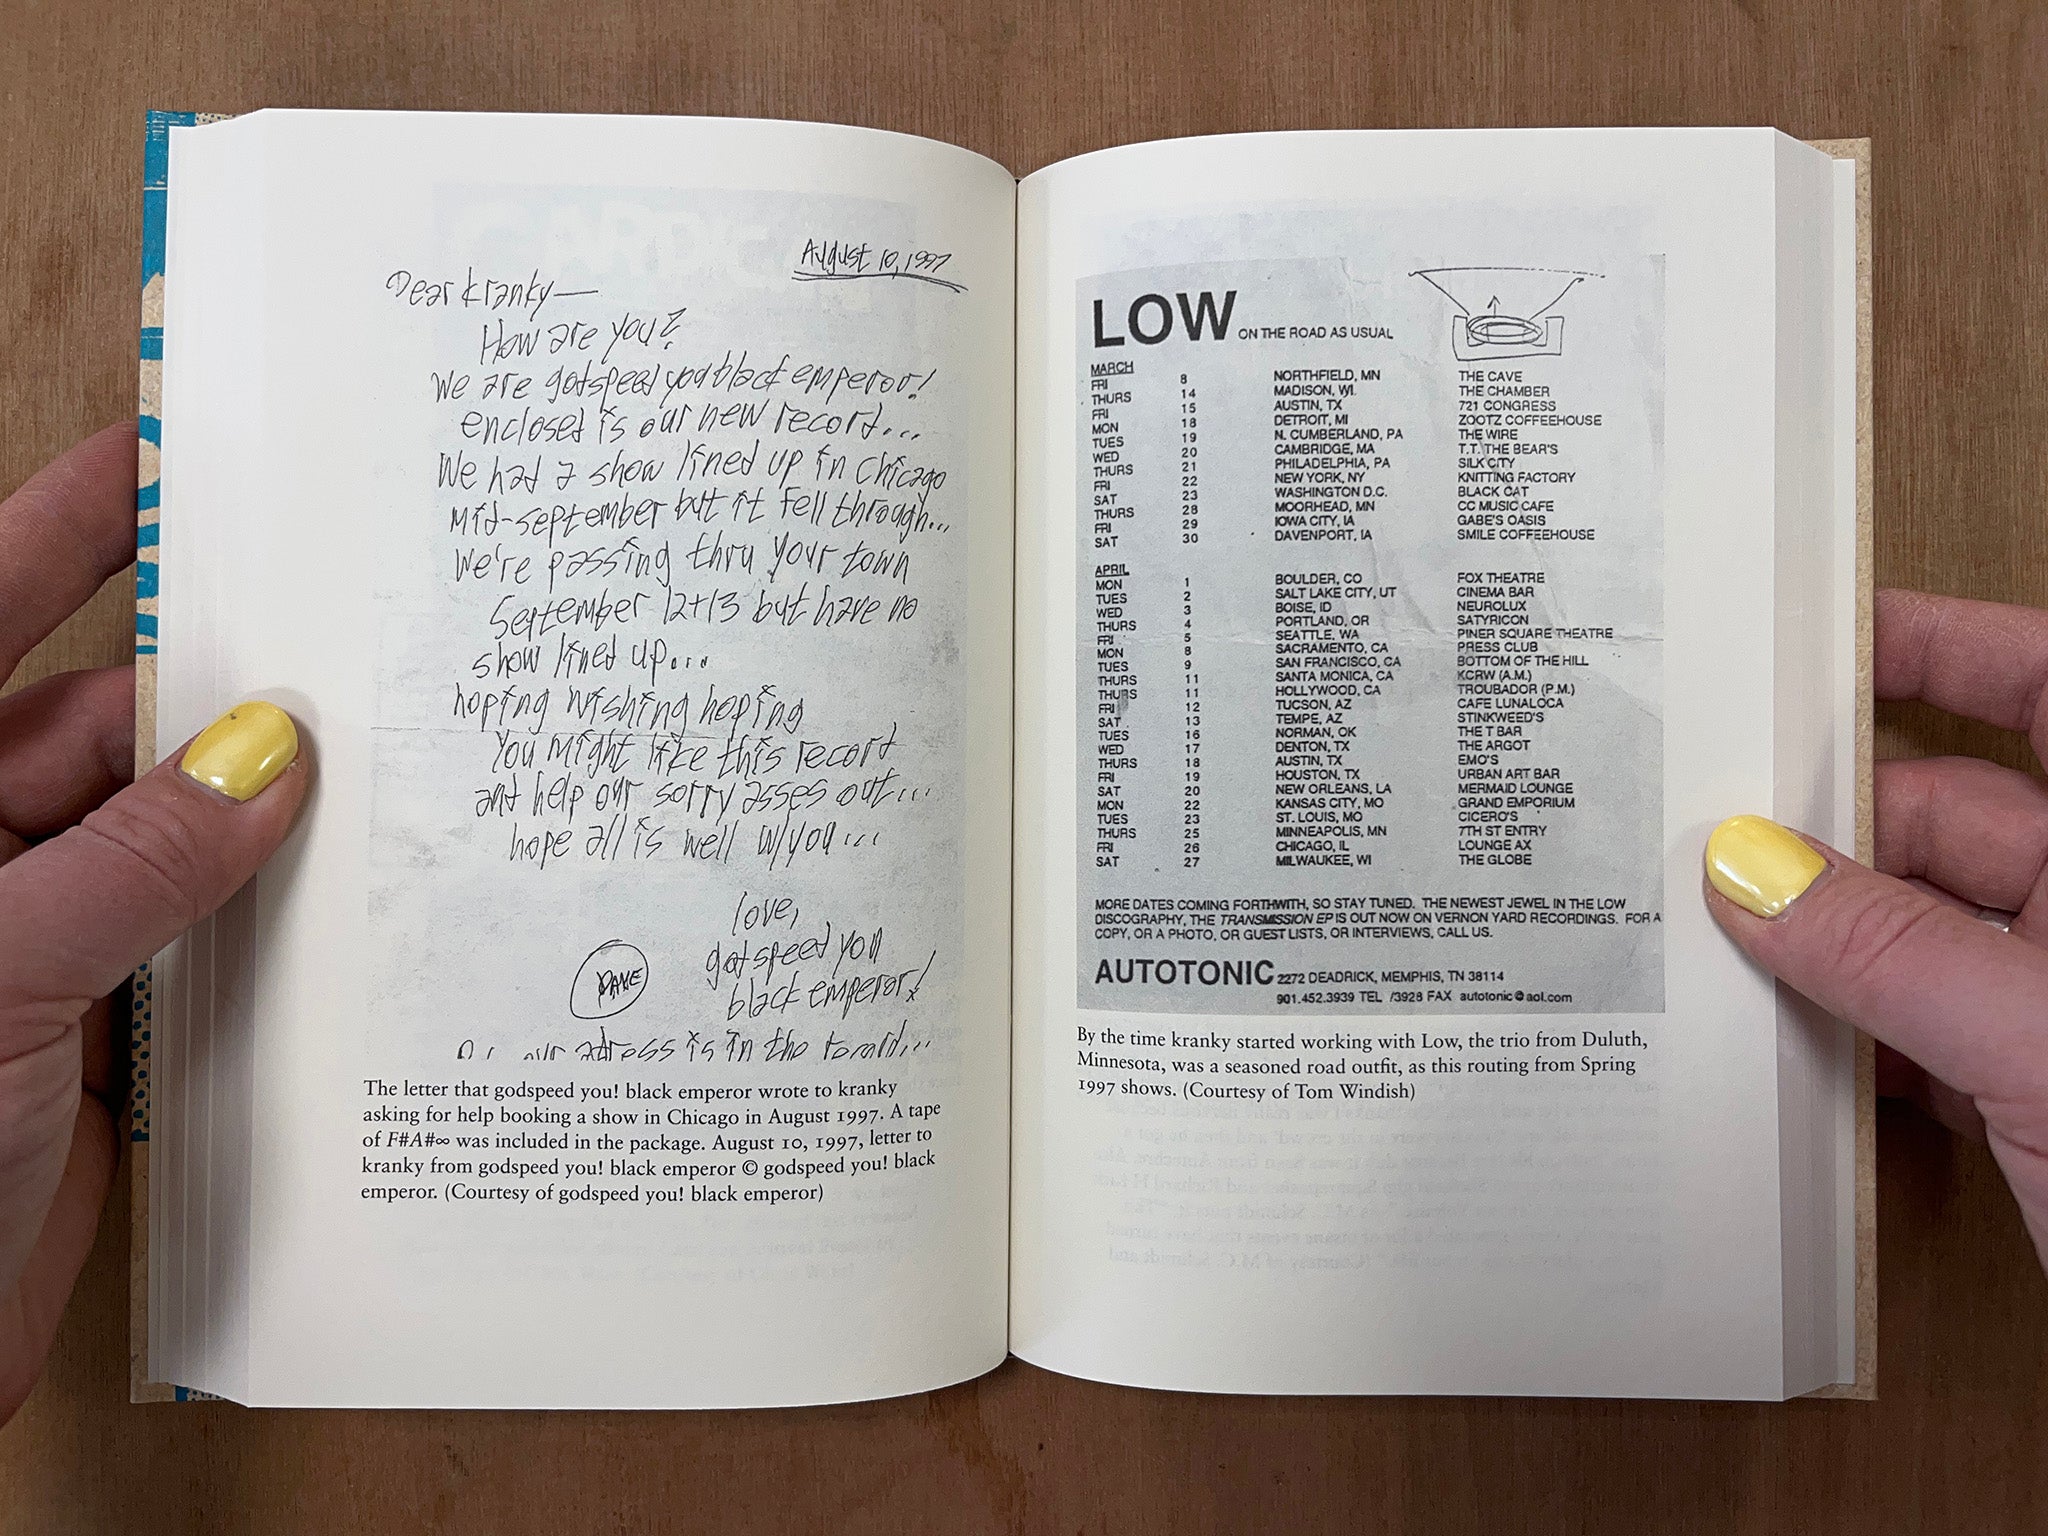 August 10, 1997
Dear kranky—
How are you?
we are godspeed you black emperor!
enclosed is our new record...
We had a show lined up in chicago
mid-september but it fell through...
We're passing thru your town
September 12+13 but have no
show lined up...
hoping wishing hoping
you might like this record
and help our sorry asses out...
hope all is well w/you...
love,
godspeed you
black emperor!
DAVE
address is in the
The letter that godspeed you! black emperor wrote to kranky
asking for help booking a show in Chicago in August 1997. A tape
of F#A#∞ was included in the package. August 10, 1997, letter to
kranky from godspeed you! black emperor © godspeed you! black
emperor. (Courtesy of godspeed you! black emperor)
LOW ON THE ROAD AS USUAL
MARCH
FRI 8 NORTHFIELD, MN THE CAVE
THURS 14 MADISON, WI. THE CHAMBER
FRI 15 AUSTIN, TX 721 CONGRESS
MON 18 DETROIT, MI ZOOTZ COFFEEHOUSE
TUES 19 N. CUMBERLAND, PA THE WIRE
WED 20 CAMBRIDGE, MA T.T. THE BEAR'S
THURS 21 PHILADELPHIA, PA SILK CITY
FRI 22 NEW YORK, NY KNITTING FACTORY
SAT 23 WASHINGTON D.C. BLACK CAT
THURS 28 MOORHEAD, MN CC MUSIC CAFE
FRI 29 IOWA CITY, IA GABE'S OASIS
SAT 30 DAVENPORT, IA SMILE COFFEEHOUSE
APRIL
MON 1 BOULDER, CO FOX THEATRE
TUES 2 SALT LAKE CITY, UT CINEMA BAR
WED 3 BOISE, ID NEUROLUX
THURS 4 PORTLAND, OR SATYRICON
FRI 5 SEATTLE, WA PINER SQUARE THEATRE
MON 8 SACRAMENTO, CA PRESS CLUB
TUES 9 SAN FRANCISCO, CA BOTTOM OF THE HILL
THURS 11 SANTA MONICA, CA KCRW (A.M.)
THURS 11 HOLLYWOOD, CA TROUBADOR (P.M.)
FRI 12 TUCSON, AZ CAFE LUNALOCA
SAT 13 TEMPE, AZ STINKWEED'S
TUES 16 NORMAN, OK THE T BAR
WED 17 DENTON, TX THE ARGOT
THURS 18 AUSTIN, TX EMO'S
FRI 19 HOUSTON, TX URBAN ART BAR
SAT 20 NEW ORLEANS, LA MERMAID LOUNGE
MON 22 KANSAS CITY, MO GRAND EMPORIUM
TUES 23 ST. LOUIS, MO CICERO'S
THURS 25 MINNEAPOLIS, MN 7TH ST ENTRY
FRI 26 CHICAGO, IL LOUNGE AX
SAT 27 MILWAUKEE, WI THE GLOBE
MORE DATES COMING FORTHWITH, SO STAY TUNED. THE NEWEST JEWEL IN THE LOW
DISCOGRAPHY, THE TRANSMISSION EP IS OUT NOW ON VERNON YARD RECORDINGS. FOR A
COPY, OR A PHOTO, OR GUEST LISTS, OR INTERVIEWS, CALL US.
AUTOTONIC 2272 DEADRICK, MEMPHIS, TN 38114
901.452.3939 TEL /3928 FAX autotonic@aol.com
By the time kranky started working with Low, the trio from Duluth,
Minnesota, was a seasoned road outfit, as this routing from Spring
1997 shows. (Courtesy of Tom Windish)